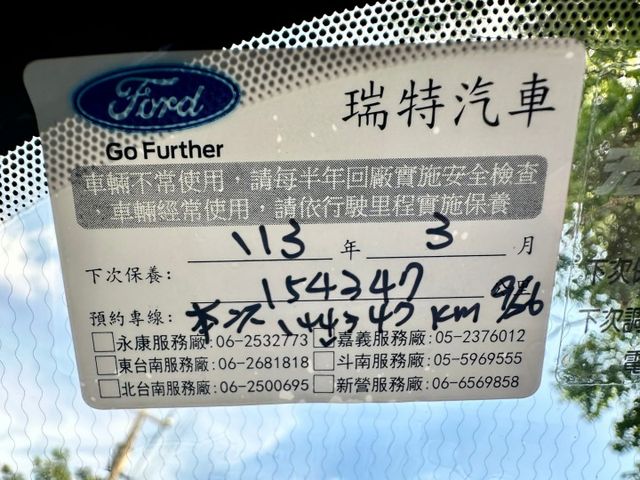 Ford
瑞特汽車
Go Further
車輛不常使用，請每半年回廠實施安全檢查
，車輛經常使用，請依行駛里程實施保養
113 年 3 月
下次保養: 154347
預約專線: 本次 144347 KM 9/26
永康服務廠:06-2532773 嘉義服務廠:05-2376012
東台南服務廠:06-2681818 斗南服務廠:05-5969555
北台南服務廠:06-2500695 新營服務廠:06-6569858
下次
下次調